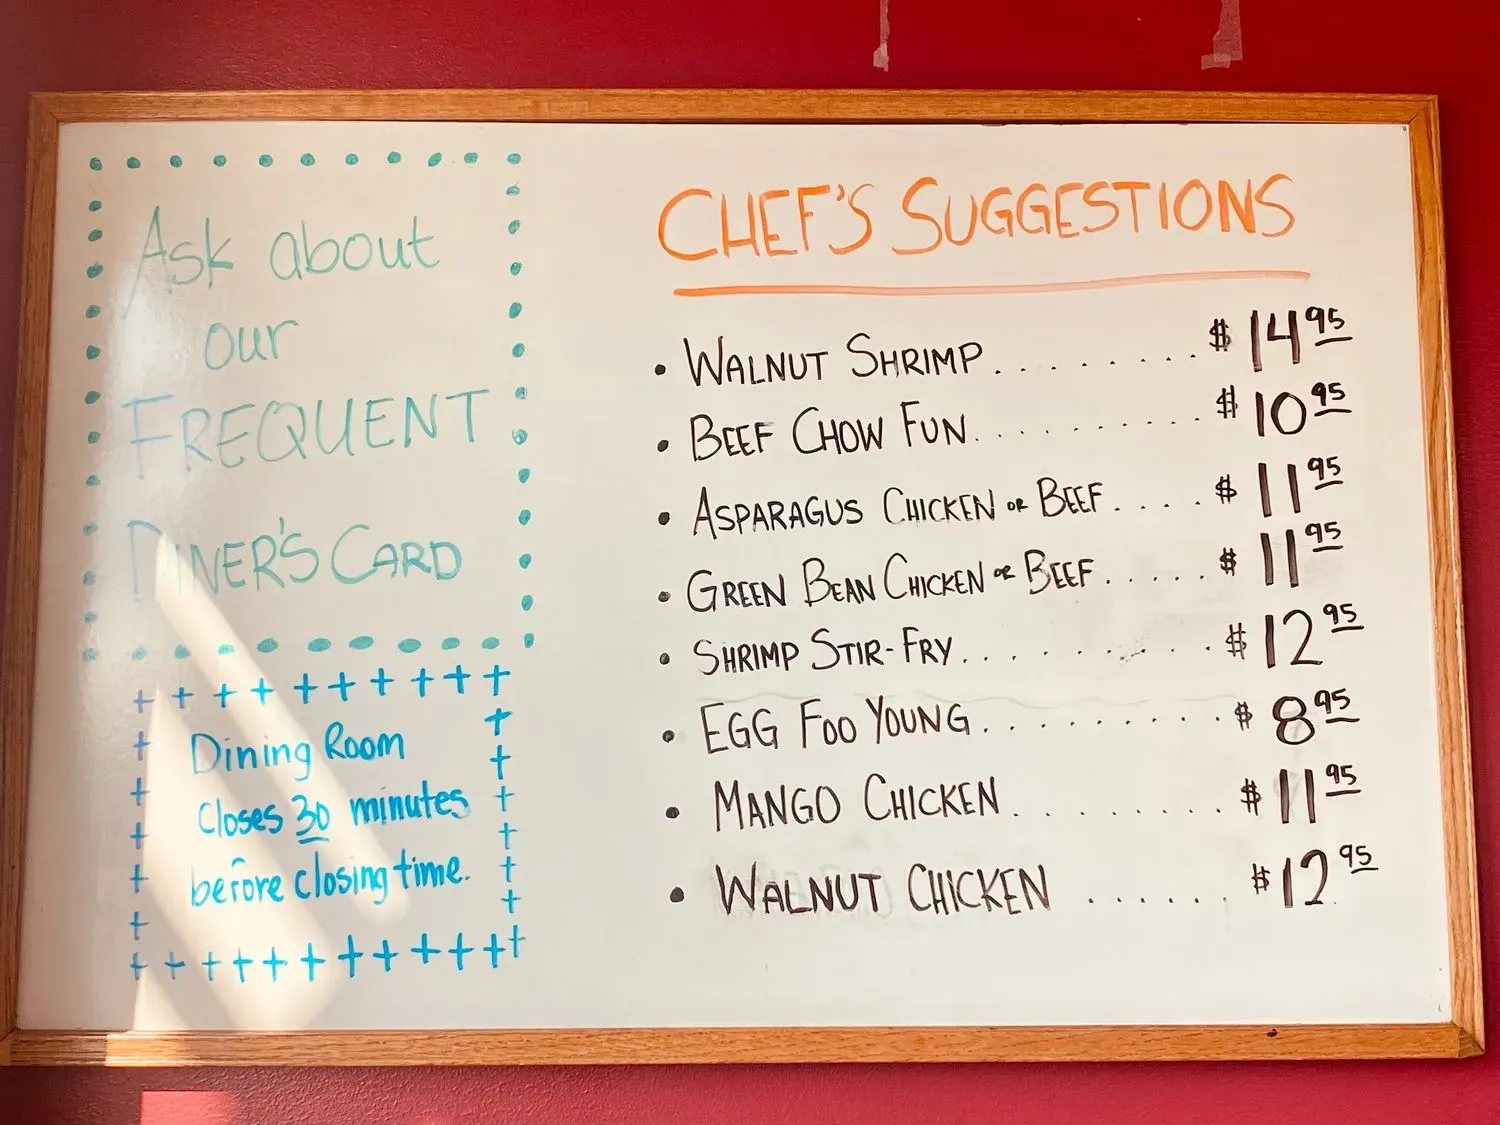 Ask about
our
FREQUENT
DINER'S CARD
Dining Room
closes 30 minutes
before closing time.
CHEF'S SUGGESTIONS
• WALNUT SHRIMP......... $14 95
• BEEF CHOW FUN.......... $10 95
• ASPARAGUS CHICKEN OR BEEF.... $11 95
• GREEN BEAN CHICKEN OR BEEF..... $11 95
• SHRIMP STIR-FRY.......... $12 95
• EGG FOO YOUNG.......... $8 95
• MANGO CHICKEN......... $11 95
• WALNUT CHICKEN ...... $12 95